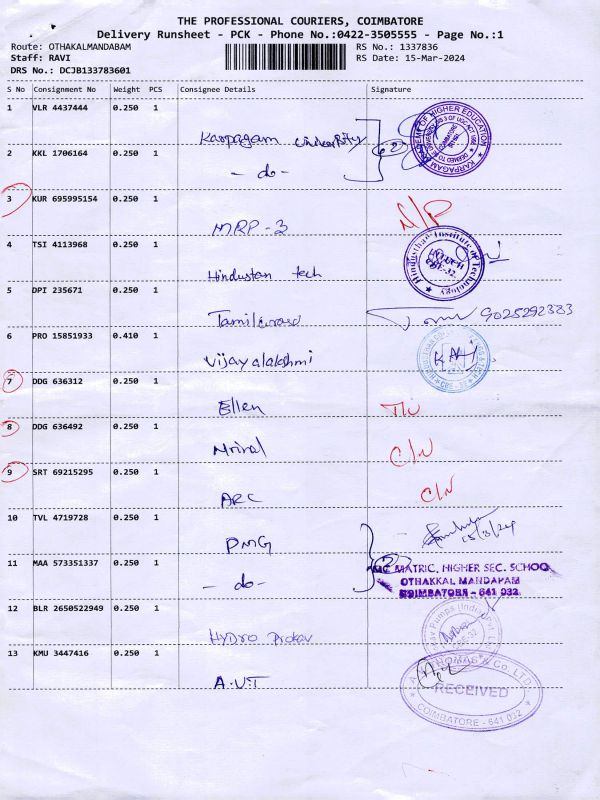 THE PROFESSIONAL COURIERS, COIMBATORE
Delivery Runsheet - PCK - Phone No.:0422-3505555 - Page No.:1
Route: OTHAKALMANDABAM RS No.: 1337836
Staff: RAVI RS Date: 15-Mar-2024
DRS No.: DCJB133783601
S No Consignment No Weight PCS Consignee Details Signature
1 VLR 4437444 0.250 1
Karpagam University
2 KKL 1706164 0.250 1
- do -
3 KUR 695995154 0.250 1
MRP-3 N/P
4 TSI 4113968 0.250 1
Hindustan tech
5 DPI 235671 0.250 1
9025292383
6 PRO 15851933 0.410 1
Vijayalakshmi
7 DDG 636312 0.250 1
Ellen
8 DDG 636492 0.250 1
C/N
9 SRT 69215295 0.250 1
ARC C/N
10 TVL 4719728 0.250 1
PMG 15/3/24
11 MAA 573351337 0.250 1
- do -
MATRIC. HIGHER SEC. SCHOO
OTHAKKAL MANDAPAM
COIMBATORE - 641 032.
12 BLR 2650522949 0.250 1
Hydro
13 KMU 3447416 0.250 1
A.V.T
RECEIVED
COIMBATORE - 641 032